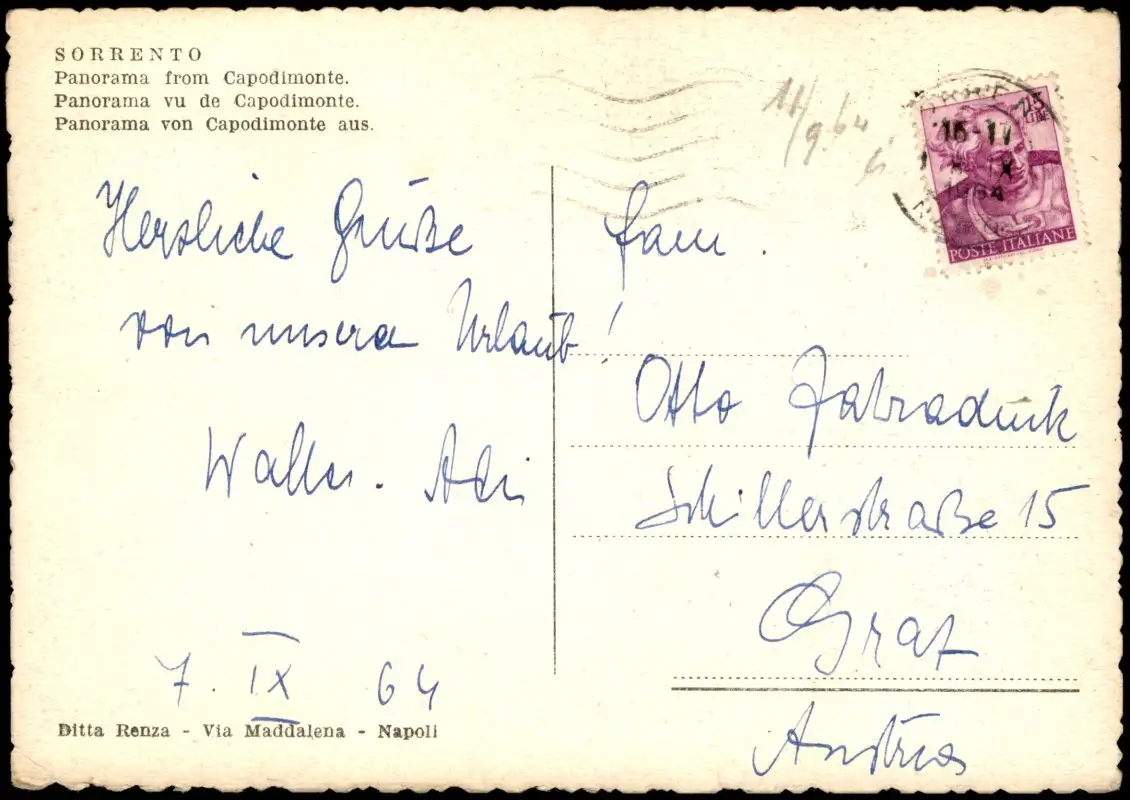 SORRENTO
Panorama from Capodimonte.
Panorama vu de Capodimonte.
Panorama von Capodimonte aus.
Herzliche Grüße
von unserem Urlaub!
Walter. Adi
7. IX 64
Ditta Renza - Via Maddalena - Napoli
11/9 64
15
LIRE
16-17
IX
1964
POSTE ITALIANE
Fam.
Otto
Schillerstraße 15
Graz
Austria